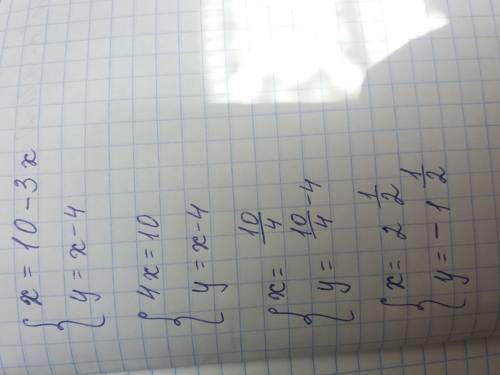 { x = 10 - 3x
y = x - 4
{ 4x = 10
y = x - 4
{ x = 10/4
y = 10/4 - 4
{ x = 2 1/2
y = - 1 1/2